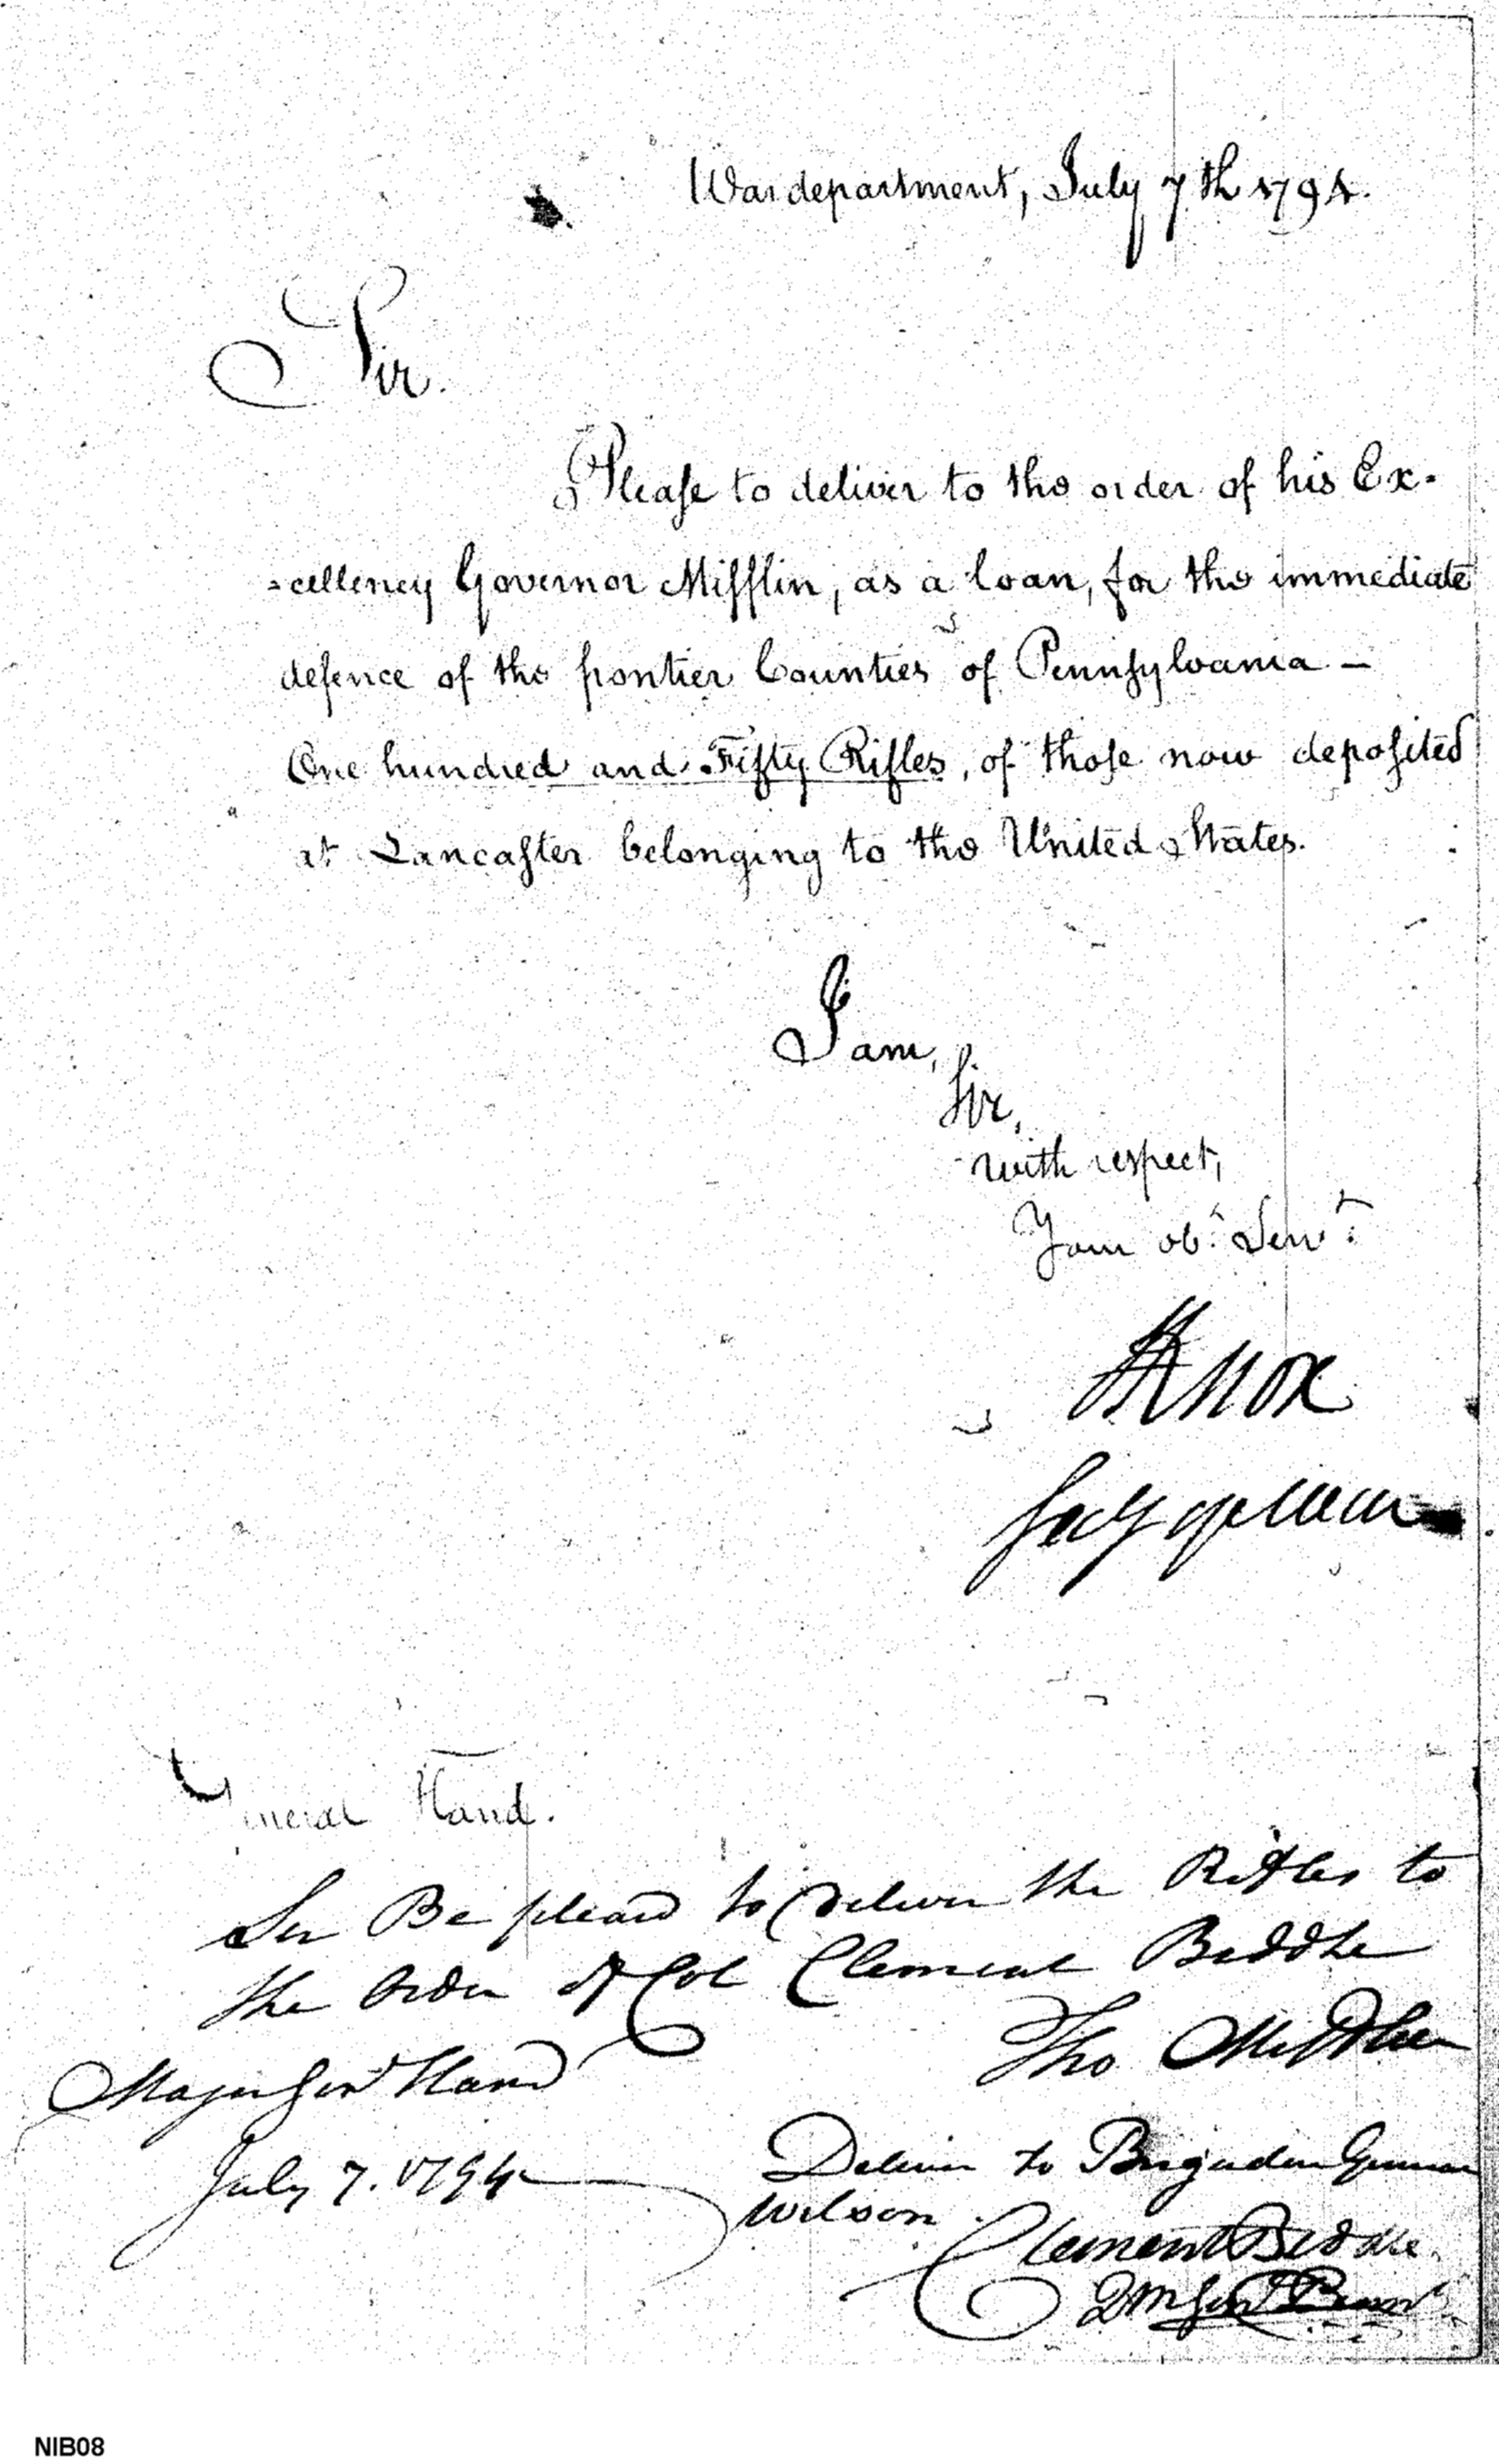 War department, July 7th 1794.
Sir.
Please to deliver to the order of his Ex-
=cellency Governor Mifflin, as a loan, for the immediate
defence of the frontier Counties of Pennsylvania —
One hundred and Fifty Rifles, of those now deposited
at Lancaster belonging to the United States.
I am,
Sir,
with respect,
Your obt. Servt.
HKnox
Secy of War
General Hand.
Sir Be pleased to Deliver the Rifles to
the Order of Col Clement Biddle
Tho Mifflin
Major Genl Hand
July 7. 1794
Deliver to Brigadier General
Wilson.
Clement Biddle
QMGenl Pennsa
NIB08